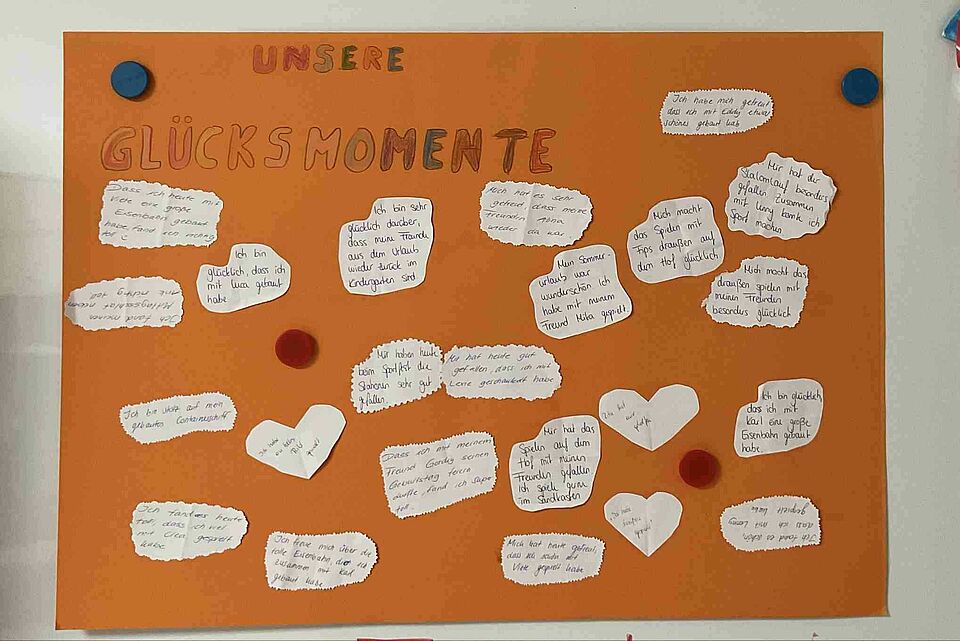 UNSERE
GLÜCKSMOMENTE
Ich habe mich gefreut
dass ich mit Eddy etwas
schönes gebaut hab
Dass ich heute mit
Viele eine große
Eisenbahn gebaut
habe, fand ich
Ich bin
glücklich, dass ich
mit Luca gebaut
habe
Ich bin sehr
glücklich darüber,
dass meine Freunde
aus dem Urlaub
wieder zurück im
Kindergarten sind.
Mich hat es sehr
gefreut, dass meine
Freundin
wieder da war.
Mein Sommer-
urlaub war
wunderschön ich
habe mit meinem
Freund Mika gespielt.
Mich macht
das Spielen mit
Fips draußen auf
dem Hof glücklich
Mir hat der
Slalomlauf besonders
gefallen Zusammen
mit Leny konnte ich
Sport machen
Mich macht das
draußen spielen mit
meinen Freunden
besonders glücklich
Ich fand meinen
Mittagsschlaf heute
richtig toll
Mir haben heute
beim Sportfest die
Stationen sehr gut
gefallen.
Mir hat heute gut
gefallen, dass ich mit
geschaukelt habe
Ich bin stolz auf mein
gebautes Containerschiff
Ich habe
ein
Bild
gemalt
Dass ich mit meinem
Freund Gordy seinen
Geburtstag feiern
durfte, fand ich super
toll.
Mir hat das
Spielen auf dem
Hof mit meinen
Freunden gefallen
ich spiele gerne
im Sandkasten
Ich bin glücklich,
dass ich mit
Karl eine große
Eisenbahn gebaut
habe.
Ich fand es heute
toll, dass ich viel
mit Clea gespielt
habe
Ich freue mich über die
tolle Eisenbahn, die ich
zusammen mit Karl
gebaut habe
Mich hat heute gefreut,
dass ich schön mit
Viele gespielt habe
Ich habe
gespielt
Ich fand es schön
dass ich mit Lenny
gespielt habe